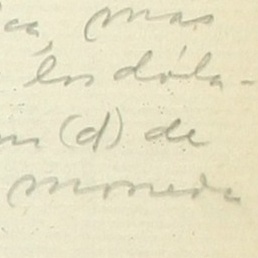 ca, mas
los dóla-
(d) de
moneda